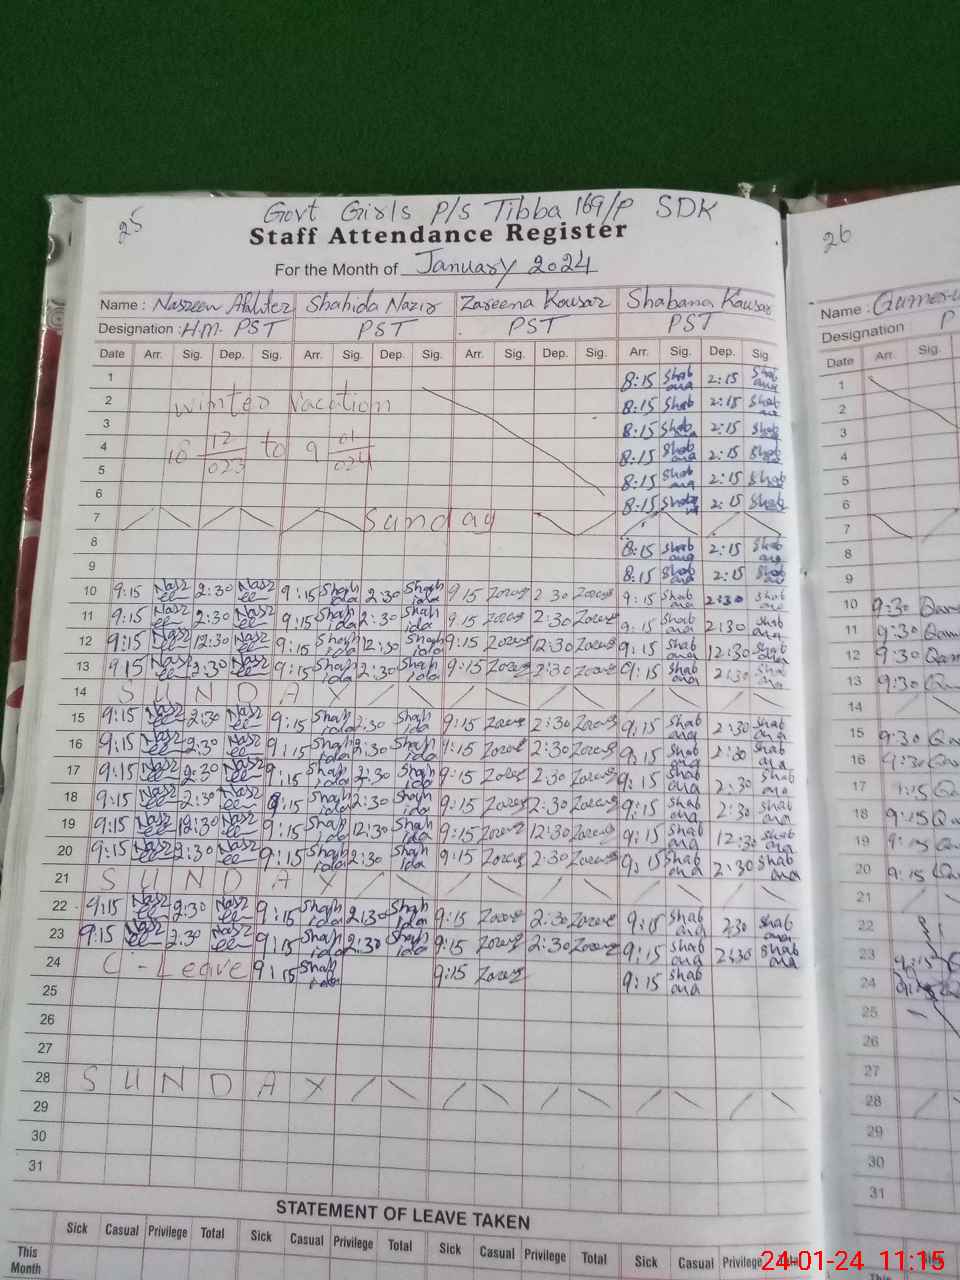 25
Govt Girls P/S Tibba 169/P SDK
Staff Attendance Register
For the Month of January 2024
Name : Nasreen Akhter Shahida Nazir Zareena Kousar Shabana Kausar
Designation : H.M. PST PST PST PST
Date Arr. Sig. Dep. Sig. Arr. Sig. Dep. Sig. Arr. Sig. Dep. Sig. Arr. Sig. Dep. Sig.
1 8:15 Shabana 2:15 Shabana
2 winter vacation 8:15 Shab 2:15 Shab
3 8:15 Shab 2:15 Shab
4 18 12/023 to 9 01/024 8:15 Shabana 2:15 Shab
5 8:15 Shabana 2:15 Shab
6 8:15 Shab 2:15 Shab
7 Sunday
8 8:15 Shabana 2:15 Shabana
9 8:15 Shabana 2:15 Shabana
10 9:15 2:30 9:15 Shahida 2:30 Shahida 9 15 2 30 9:15 Shabana 2:30 Shabana
11 9:15 2:30 9:15 Shahida 2:30 Shahida 9.15 2:30 9:15 Shabana 2:30 Shabana
12 9:15 12:30 9:15 Shahida 12:30 Shahida 9:15 12:30 9:15 Shabana 12:30 Shabana
13 9:15 2:30 9:15 Shahida 2:30 Shahida 9:15 2:30 9:15 Shabana 2:30 Shabana
14 SUNDAY
15 9:15 2:30 9:15 Shahida 2:30 Shahida 9:15 2:30 9:15 Shabana 2:30 Shabana
16 9:15 2:30 9:15 Shahida 2:30 Shahida 9:15 2:30 9:15 Shabana 2:30 Shabana
17 9:15 2:30 9:15 Shahida 2:30 Shahida 9:15 2:30 9:15 Shabana 2:30 Shabana
18 9:15 2:30 9:15 Shahida 2:30 Shahida 9:15 2:30 9:15 Shabana 2:30 Shabana
19 9:15 12:30 9:15 Shahida 12:30 Shahida 9:15 12:30 9:15 Shabana 12:30 Shabana
20 9:15 2:30 9:15 Shahida 2:30 Shahida 9:15 2:30 9:15 Shabana 2:30 Shabana
21 SUNDAY
22 9:15 2:30 9:15 Shahida 2:30 Shahida 9:15 2:30 9:15 Shabana 2:30 Shabana
23 9:15 2:30 9:15 Shahida 2:30 Shahida 9:15 2:30 9:15 Shabana 2:30 Shabana
24 C-Leave 9:15 Shahida 9:15 9:15 Shabana
25
26
27
28 SUNDAY
29
30
31
STATEMENT OF LEAVE TAKEN
Sick Casual Privilege Total Sick Casual Privilege Total Sick Casual Privilege Total Sick Casual Privilege Total
This Month
26
Name :
Designation P
Date Arr. Sig.
1
2
3
4
5
6
7
8
9
10 9:30
11 9:30
12 9:30
13 9:30
14
15 9:30
16 9:30
17 9:15
18 9:15
19 9:15
20 9:15
21
22
23 9:15
24
25
26
27
28
29
30
31
Sick
This
24-01-24 11:15